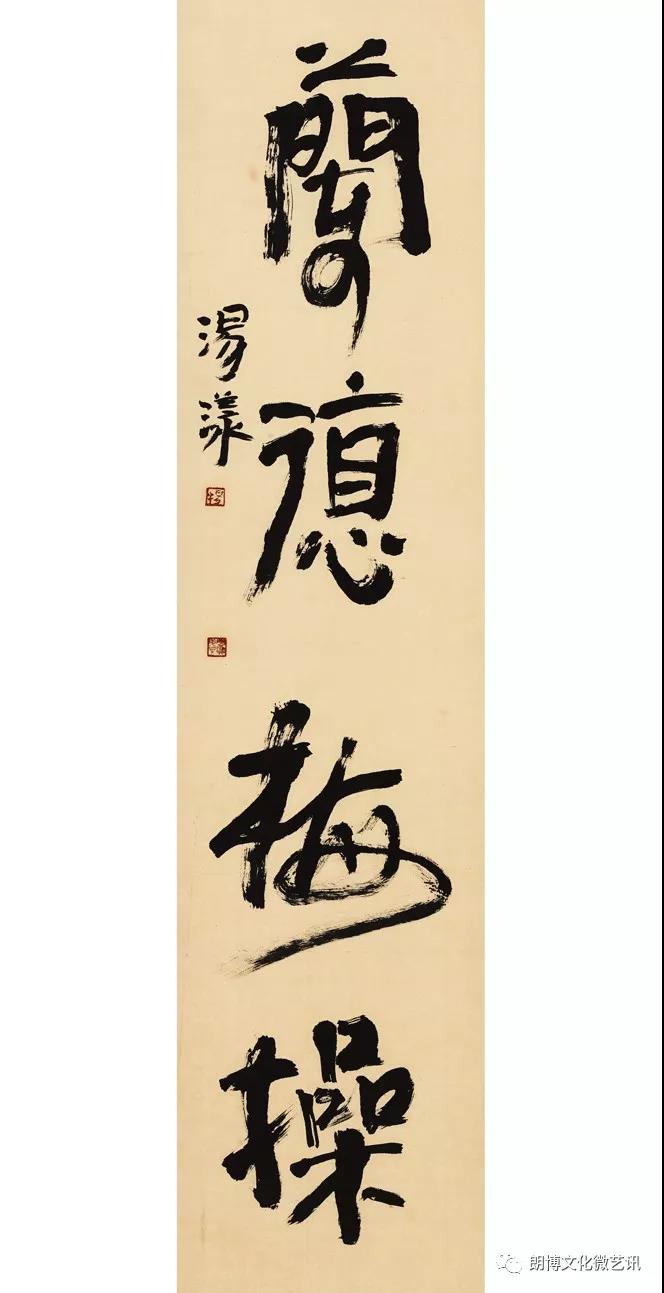 蘭德梅操
湯漾
朗博文化微艺讯